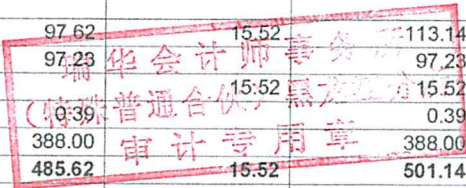 97.62 15.52 113.14
97.23 97.23
15.52 15.52
0.39 0.39
388.00 388.00
485.62 15.52 501.14
瑞华会计师事务所
（特殊普通合伙）黑龙江分所
审计专用章